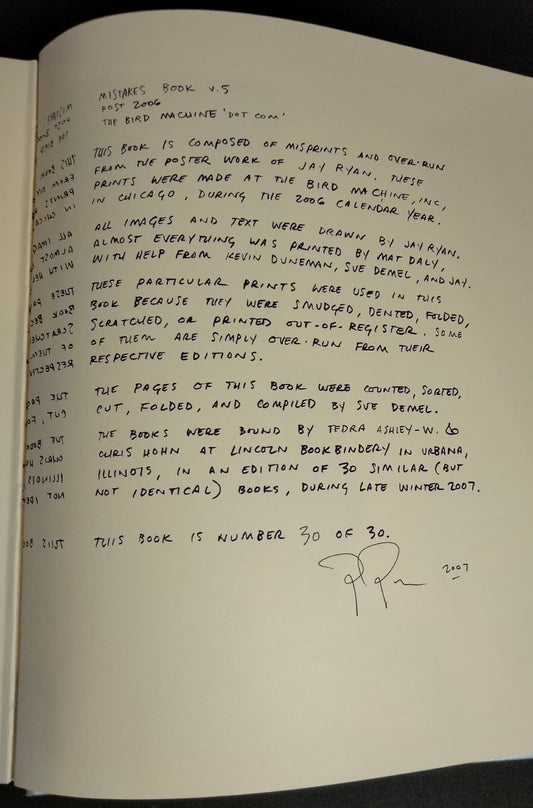 MISTAKES BOOK v.5
POST 2006
THE BIRD MACHINE 'DOT COM'
THIS BOOK IS COMPOSED OF MISPRINTS AND OVER-RUN
FROM THE POSTER WORK OF JAY RYAN. THESE
PRINTS WERE MADE AT THE BIRD MACHINE, INC,
IN CHICAGO, DURING THE 2006 CALENDAR YEAR.
ALL IMAGES AND TEXT WERE DRAWN BY JAY RYAN.
ALMOST EVERYTHING WAS PRINTED BY MAT DALY,
WITH HELP FROM KEVIN DUNEMAN, SUE DEMEL, AND JAY.
THESE PARTICULAR PRINTS WERE USED IN THIS
BOOK BECAUSE THEY WERE SMUDGED, DENTED, FOLDED,
SCRATCHED, OR PRINTED OUT-OF-REGISTER. SOME
OF THEM ARE SIMPLY OVER-RUN FROM THEIR
RESPECTIVE EDITIONS.
THE PAGES OF THIS BOOK WERE COUNTED, SORTED,
CUT, FOLDED, AND COMPILED BY SUE DEMEL.
THE BOOKS WERE BOUND BY TEDRA ASHLEY-W. &
CHRIS HOHN AT LINCOLN BOOKBINDERY IN URBANA,
ILLINOIS, IN AN EDITION OF 30 SIMILAR (BUT
NOT IDENTICAL) BOOKS, DURING LATE WINTER 2007.
THIS BOOK IS NUMBER 30 OF 30.
2007